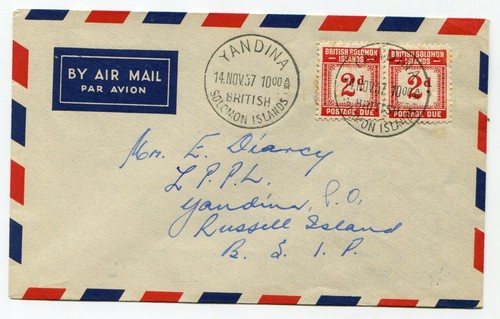 BY AIR MAIL
PAR AVION
YANDINA
14.NOV.57 10 00 AM
BRITISH
SOLOMON ISLANDS
BRITISH SOLOMON
ISLANDS
2d
POSTAGE DUE
BRITISH SOLOMON
ISLANDS
2d
POSTAGE DUE
NOV.57 10 00
ISLANDS
E. Diarcy
L.P.P.L.
Yandina, P.O.
Russell Island
B. S. I. P.